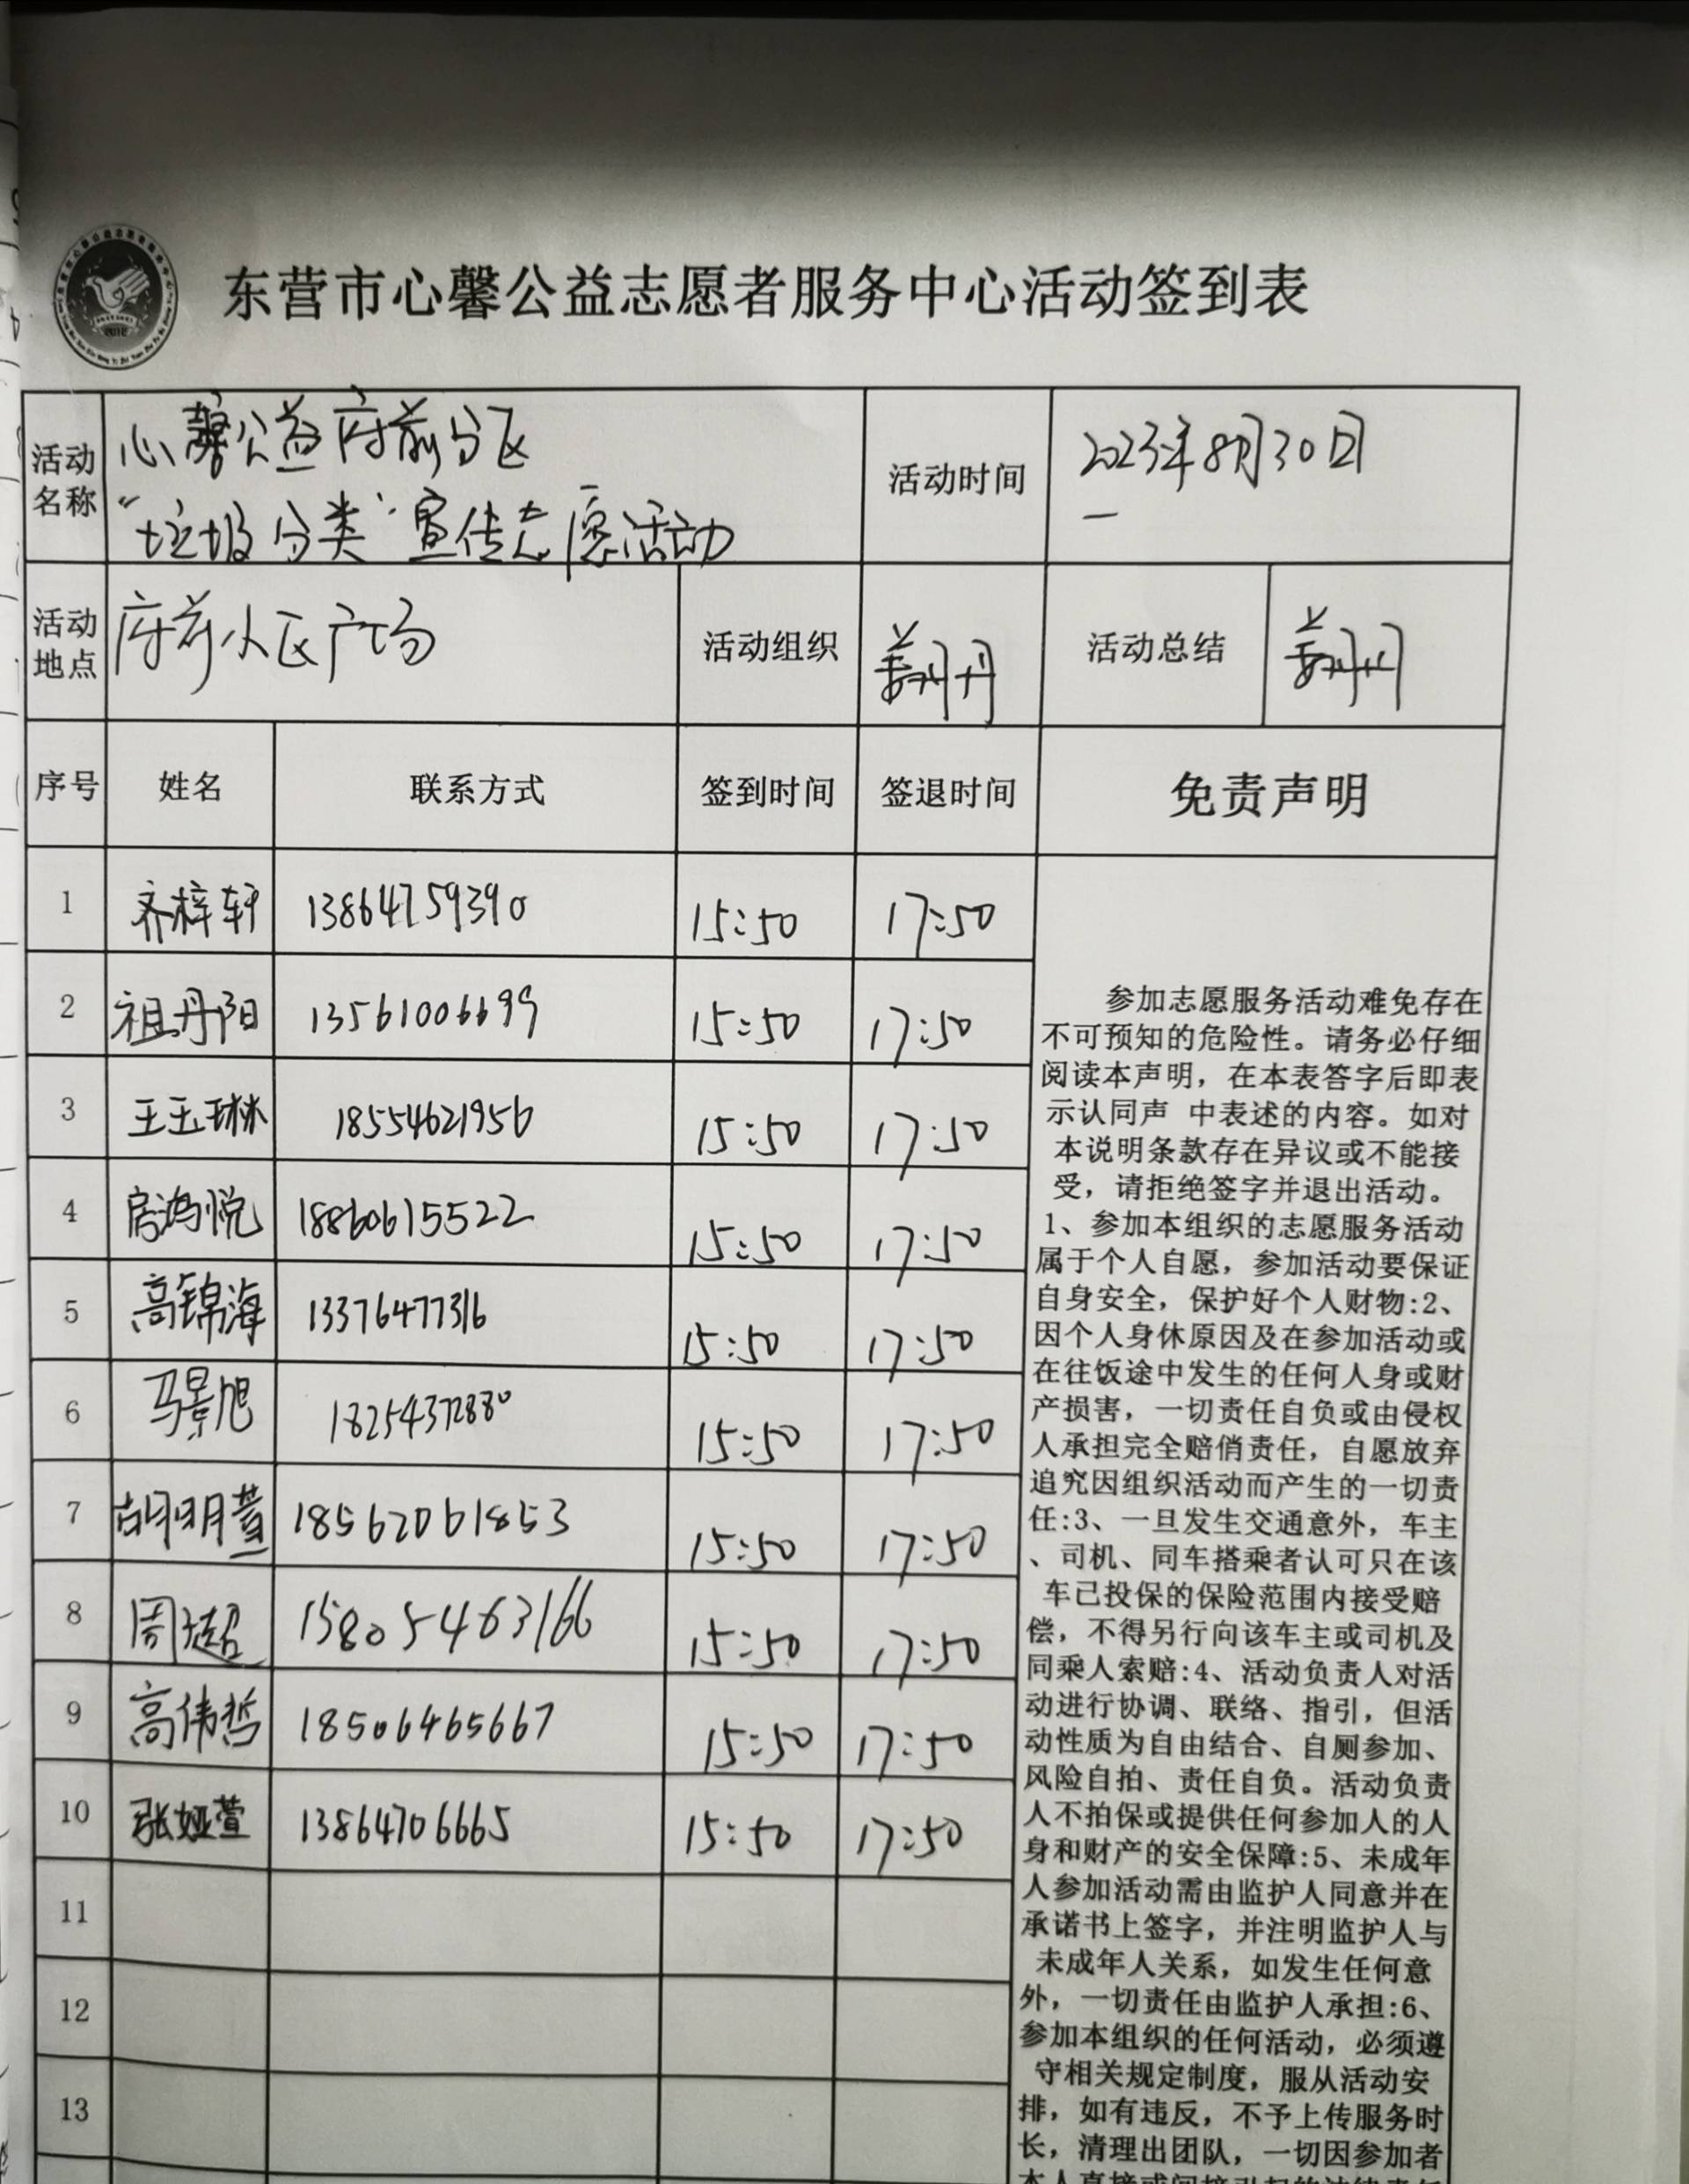 东营市心馨公益志愿者服务中心活动签到表
活动名称 心馨公益府前分区 活动时间 2023年8月30日
“垃圾分类”宣传志愿活动
活动地点 府前小区广场 活动组织 姜丹丹 活动总结 姜丹丹
序号 姓名 联系方式 签到时间 签退时间 免责声明
1 齐梓轩 13864759390 15:50 17:50
2 祖丹阳 13561006699 15:50 17:50
3 王玉琳 18554621956 15:50 17:50
4 房鸿悦 18860615522 15:50 17:50
5 高锦海 13376477316 15:50 17:50
6 马景旭 18254372880 15:50 17:50
7 胡明萱 18562061853 15:50 17:50
8 周超 15805463166 15:50 17:50
9 高伟哲 18506465667 15:50 17:50
10 张娅萱 13864706665 15:50 17:50
11
12
13
参加志愿服务活动难免存在
不可预知的危险性。请务必仔细
阅读本声明，在本表答字后即表
示认同声 中表述的内容。如对
本说明条款存在异议或不能接
受，请拒绝签字并退出活动。
1、参加本组织的志愿服务活动
属于个人自愿，参加活动要保证
自身安全，保护好个人财物:2、
因个人身休原因及在参加活动或
在往饭途中发生的任何人身或财
产损害，一切责任自负或由侵权
人承担完全赔俏责任，自愿放弃
追究因组织活动而产生的一切责
任:3、一旦发生交通意外，车主
、司机、同车搭乘者认可只在该
车已投保的保险范围内接受赔
偿，不得另行向该车主或司机及
同乘人索赔:4、活动负责人对活
动进行协调、联络、指引，但活
动性质为自由结合、自厕参加、
风险自拍、责任自负。活动负责
人不拍保或提供任何参加人的人
身和财产的安全保障:5、未成年
人参加活动需由监护人同意并在
承诺书上签字，并注明监护人与
未成年人关系，如发生任何意
外，一切责任由监护人承担:6、
参加本组织的任何活动，必须遵
守相关规定制度，服从活动安
排，如有违反，不予上传服务时
长，清理出团队，一切因参加者